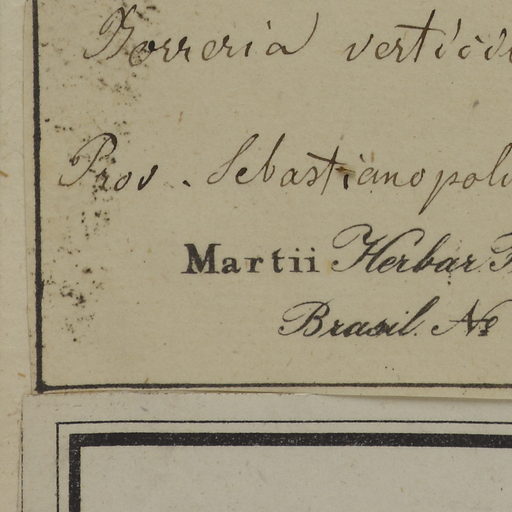 Borreria vertici
Prov. Sebastianopoli
Martii Herbar.
Brasil. No